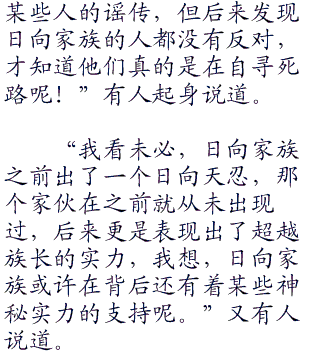 某些人的谣传，但后来发现
日向家族的人都没有反对，
才知道他们真的是在自寻死
路呢！”有人起身说道。
“我看未必，日向家族
之前出了一个日向天忍，那
个家伙在之前就从未出现
过，后来更是表现出了超越
族长的实力，我想，日向家
族或许在背后还有着某些神
秘实力的支持呢。”又有人
说道。